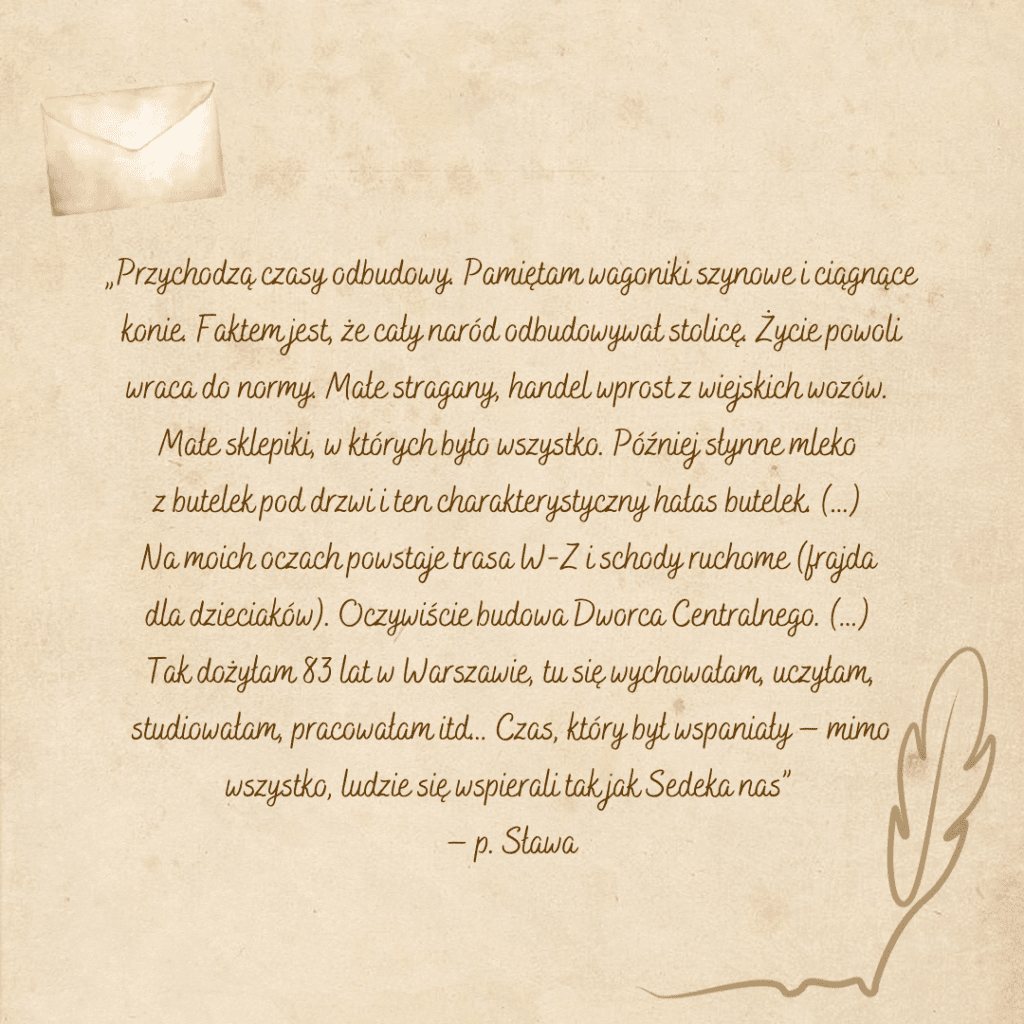 „Przychodzą czasy odbudowy. Pamiętam wagoniki szynowe i ciągnące
konie. Faktem jest, że cały naród odbudowywał stolicę. Życie powoli
wraca do normy. Małe stragany, handel wprost z wiejskich wozów.
Małe sklepiki, w których było wszystko. Później słynne mleko
z butelek pod drzwi i ten charakterystyczny hałas butelek. (...)
Na moich oczach powstaje trasa W-Z i schody ruchome (frajda
dla dzieciaków). Oczywiście budowa Dworca Centralnego. (...)
Tak dożyłam 83 lat w Warszawie, tu się wychowałam, uczyłam,
studiowałam, pracowałam itd... Czas, który był wspaniały – mimo
wszystko, ludzie się wspierali tak jak Sedeka nas”
– p. Sława